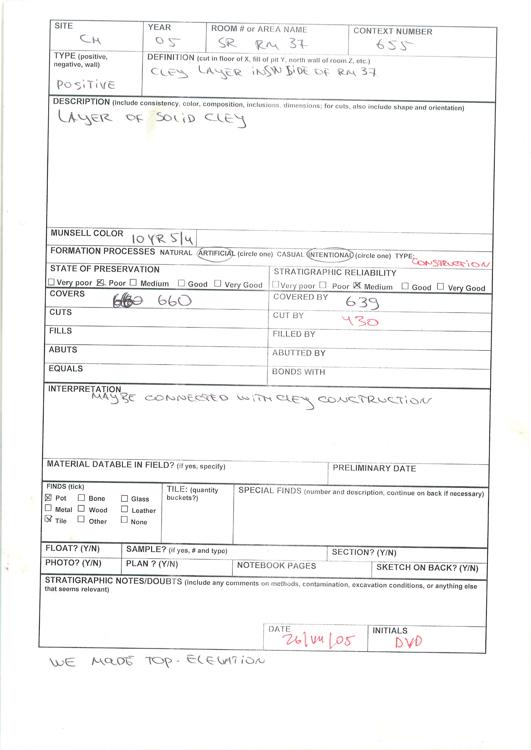 SITE YEAR ROOM # or AREA NAME CONTEXT NUMBER
CH 05 SR RM 37 655
TYPE (positive, negative, wall) DEFINITION (cut in floor of X, fill of pit Y, north wall of room Z, etc.)
POSITIVE CLEY LAYER INSIDE OF RM 37
DESCRIPTION (include consistency, color, composition, inclusions, dimensions; for cuts, also include shape and orientation)
LAYER OF SOLID CLEY
MUNSELL COLOR 10YR 5/4
FORMATION PROCESSES NATURAL ARTIFICIAL (circle one) CASUAL INTENTIONAL (circle one) TYPE: CONSTRUCTION
STATE OF PRESERVATION STRATIGRAPHIC RELIABILITY
Very poor Poor Medium Good Very Good Very poor Poor Medium Good Very Good
COVERS 660 COVERED BY 639
CUTS CUT BY 430
FILLS FILLED BY
ABUTS ABUTTED BY
EQUALS BONDS WITH
INTERPRETATION
MAYBE CONNECTED WITH CLEY CONCTRUCTION
MATERIAL DATABLE IN FIELD? (if yes, specify) PRELIMINARY DATE
FINDS (tick) TILE: (quantity buckets?) SPECIAL FINDS (number and description, continue on back if necessary)
Pot Bone Glass
Metal Wood Leather
Tile Other None
FLOAT? (Y/N) SAMPLE? (if yes, # and type) SECTION? (Y/N)
PHOTO? (Y/N) PLAN ? (Y/N) NOTEBOOK PAGES SKETCH ON BACK? (Y/N)
STRATIGRAPHIC NOTES/DOUBTS (Include any comments on methods, contamination, excavation conditions, or anything else
that seems relevant)
DATE INITIALS
26/VII/05 DVD
WE MADE TOP-ELEVATION